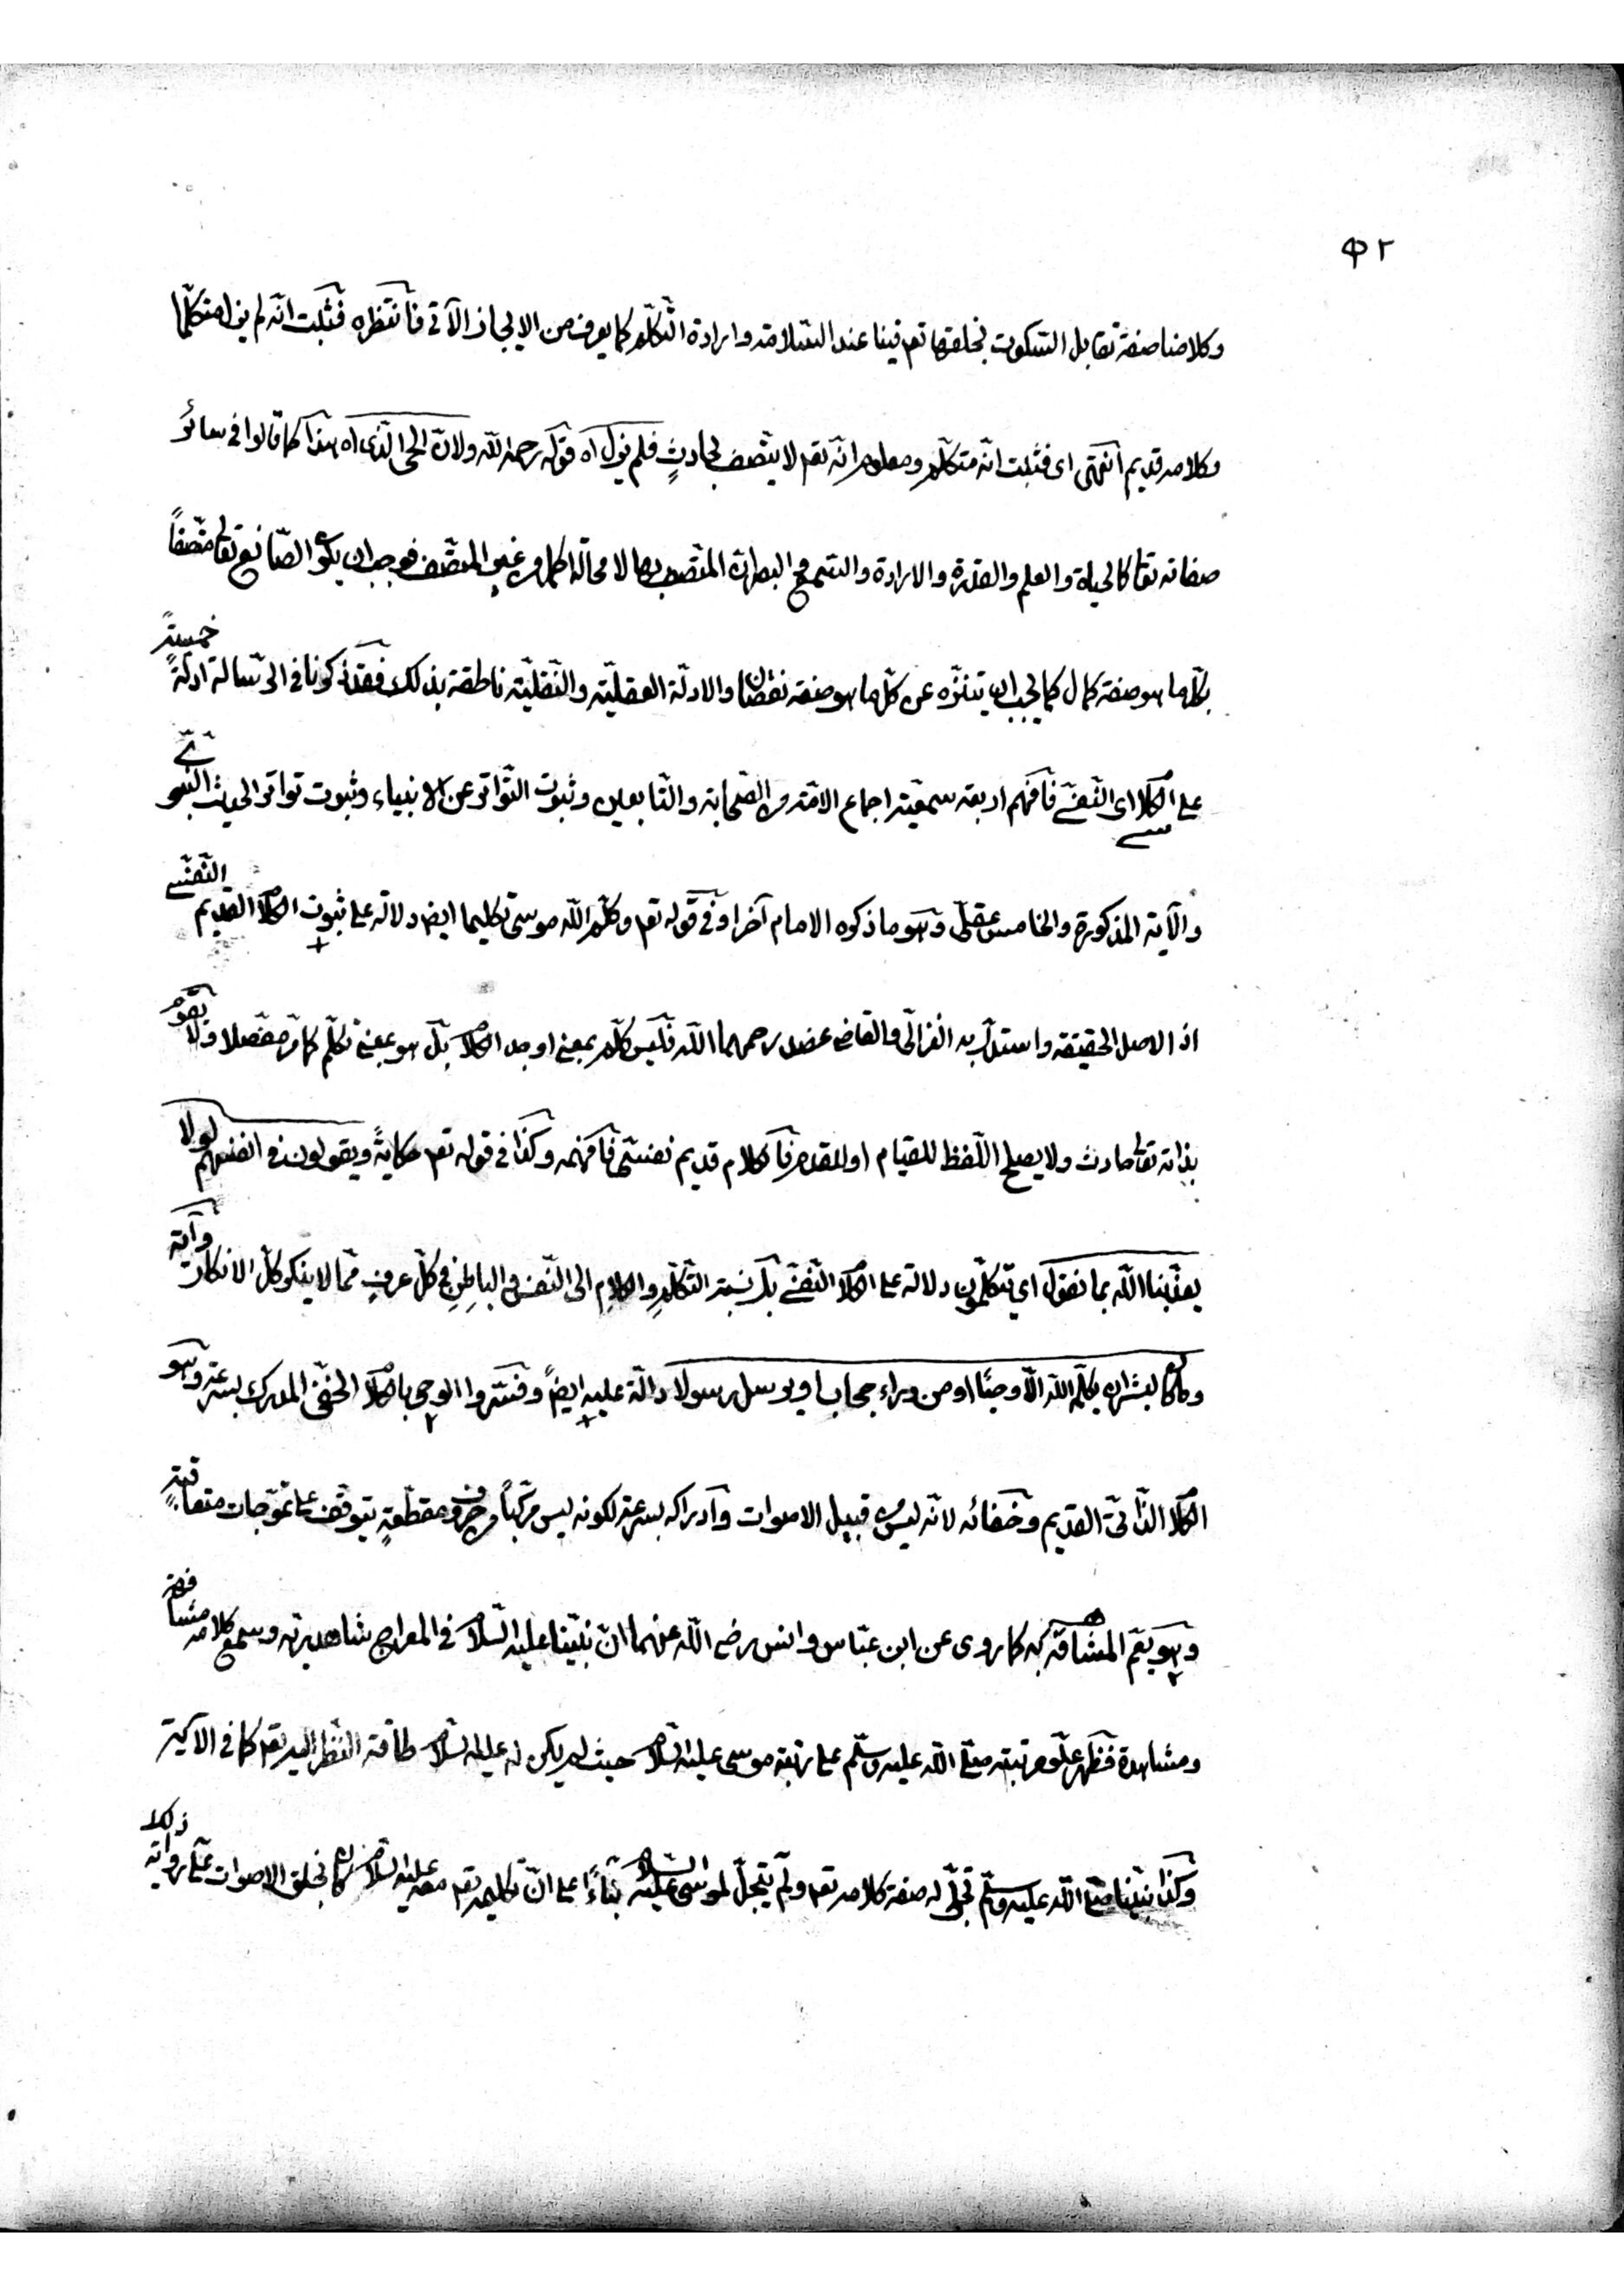 ٤٢
وكلامنا صفة تقابل السكوت يخلقها تعم فينا عند السلامة وارادة التكلّم كما يعرف من الايجاز الآتى فأنتظره فثبت انّه لم يزل متكلّما
وكلامه قديم أنتهى اى فثبت انّه متكلّم ومعلوم انّه تعم لا يتّصف بحادثٍ فلم يزل اه قوله رحمه اللّه ولانّ الحى الّذى اه هذا كما قالوا فى سائر
صفاته تعا كالحياة والعلم والقدرة والارادة والسّمع والبصر انّ المتّصف بها لا محالة اكمل من غير المتّصف فوجب ان يكون الصّانع تعالى متّصفاً
بكلّ ما هو صفة كمال كما يجب ان يتنزّه عن كلّ ما هو صفة نقصان والادلّة العقليّة والنّقليّة ناطقة بذلك فقد ذكرنا فى الرّسالة ادلّةً خمسةً
على الكلام اى النّفسے فأفهم اربعة سمعيّة اجماع الامّة من الصّحابة والتّابعين وثبوت التّواتر عن الانبياء وثبوت تواتر الحديث النّبوىّ
والآية المذكورة والخامس عقلىّ وهو ما ذكره الامام آخرا وفى قوله تعم وكلّم اللّه موسى تكليما ايضا دلالة على ثبوت الكلام القديم النّفسے
اذ الاصل الحقيقة واستدلّ به الغزالى والقاضى عضد رحمهما اللّه فليس كلّم بمعنى اوجد الكلام بل هو بمعنى تكلّم كما مرّ مفصّلا ولا يقوم
بذاته تعالى حادث ولا يصلح اللّفظ للقيام او للقدم فالكلام قديم نفسىّ فأفهمه وكذا فى قوله تعم حكايةً ويقولون فى انفسهم لولا
يعذّبنا اللّه بما نقول اى يتكلّمون دلالة على الكلام النّفسے بل نسبة التّكلّم والكلام الى النّفس والباطن فى كلّ عرفٍ ممّا لا ينكر كلّ الانكار وآية
وما كان لبشر ان يكلّمه اللّه الّا وحيًا او من وراء حجاب او يرسل رسولا دالّة عليه ايضاً وفسّروا الوحى بالكلام الخفىّ المدرك بسرعة وهو
الكلام الذّاتىّ القديم وخفائه لانّه ليس من قبيل الاصوات وادراكه بسرعة لكونه ليس مركّباً من حروف مقطّعةٍ يتوقّف على تموّجات متعاقبةٍ
وهو يعمّ المشافه به كما روى عن ابن عبّاس وانس رضى اللّه عنهما انّ نبيّنا عليه السّلام فى المعراج شاهد ربّه وسمع كلامه مشافهة
ومشاهدة فظهر علوّ مرتبته صلى اللّه عليه وسلّم على رتبة موسى عليه السّلام حيث لم يكن له عليه السّلام طاقة النّظر اليه تعم كما فى الآية
وكذا نبيّنا صلى اللّه عليه وسلّم تجلّى له صفة كلامه تعم ولم يتجلّ لموسى عليه السّلام بناءً على انّ تكليمه تعم معه عليه السّلام كان بخلق الاصوات على رواية
ذكلا